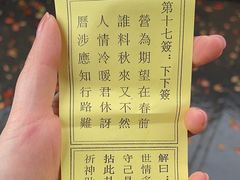 第十七簽：下下簽
營為期望在春前
誰料秋來又不然
人情冷暖君休訝
曆涉應知行路難
解曰：
世情
守己
拈此
祈神